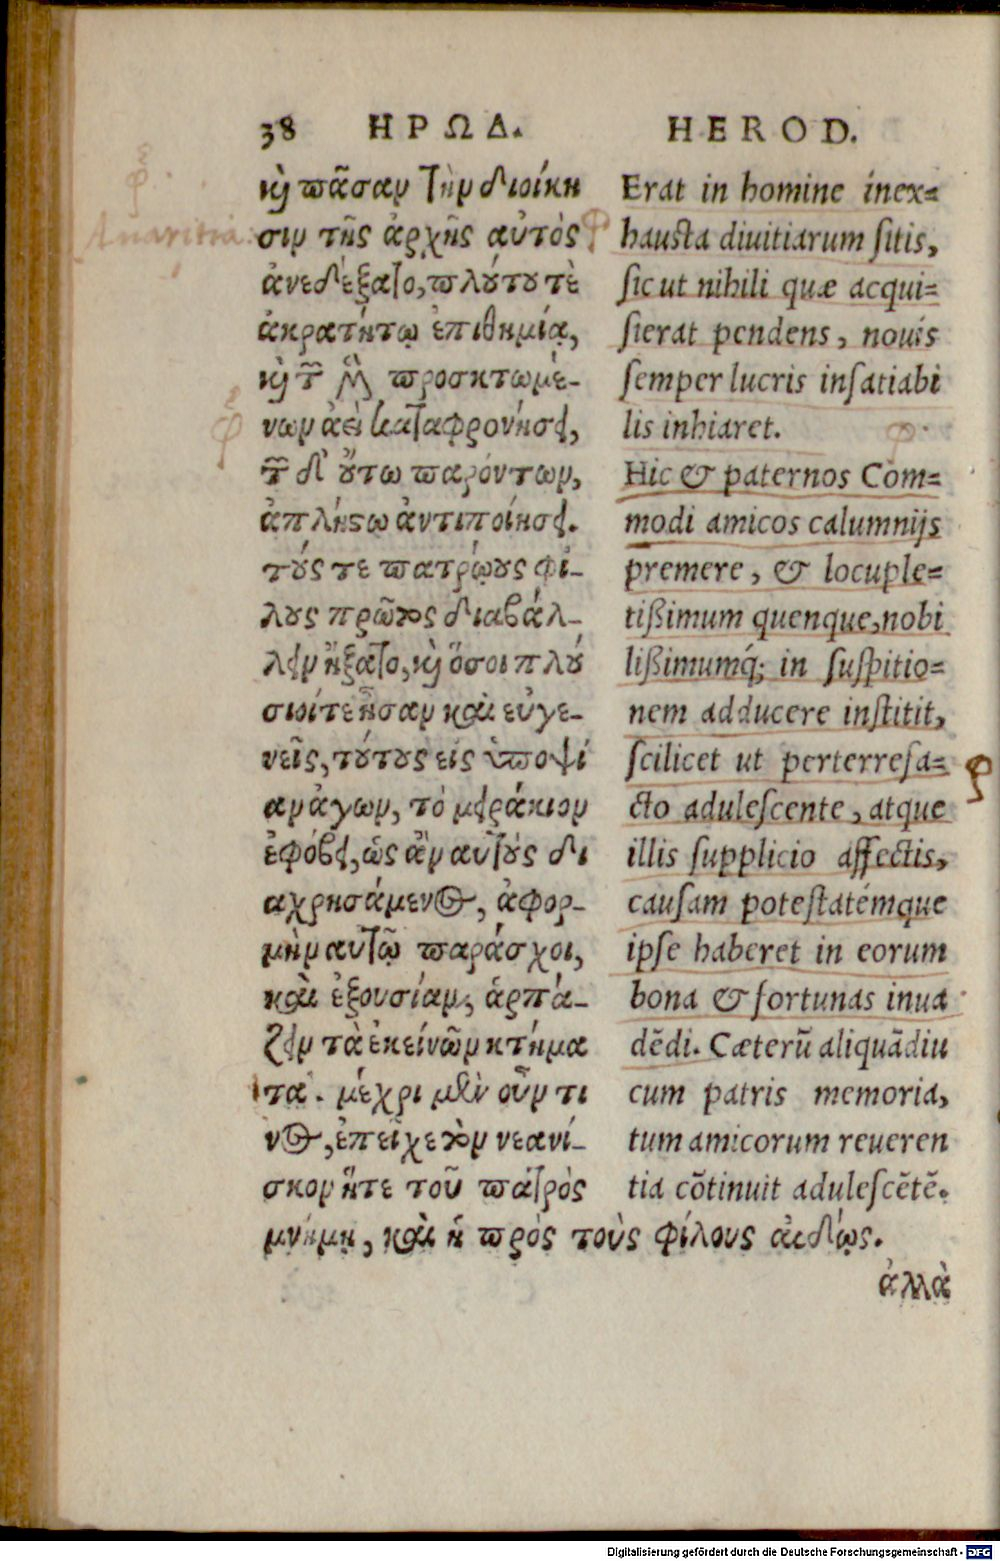 38 ΗΡΩΔ. HEROD.
καὶ πᾶσαν τὴν διοίκη
σιν τῆς ἀρχῆς αὐτὸς
ἀνεδέξατο, πλούτου τὲ
ἀκρατήτῳ ἐπιθημίᾳ,
καὶ τῶν μὴ προσκτωμέ-
νων ἀεὶ καταφρονήσει,
τῶν δ' οὔτω παρόντων,
ἀπλήστω ἀντιποίησει.
τούς τε πατρῴους φί-
λους πρῶτος διαβάλ-
λειν ἤξατο, καὶ ὅσοι πλού
σιοίτε ἦσαν καὶ εὐγε-
νεῖς, τούτους εἰς ὑποψί
αν ἄγων, τὸ μειράκιον
ἐφόβει, ὡς ἂν αὐτοὺς δι
αχρησάμενος, ἀφορ-
μὴν αυτῷ παράσχοι,
καὶ ἐξουσίαν, ἁρπά-
ζειν τὰ ἐκείνῶν κτήμα
τα. μέχρι μὲν οὖν τι
νος, ἐπεῖχε τὸν νεανί-
σκον ἥτε τοῦ πατρὸς
μνήμη, καὶ ἡ πρὸς τοὺς φίλους αἰδώς.
ἀλλὰ
Erat in homine inex=
hausta diuitiarum sitis,
sic ut nihili quæ acqui=
sierat pendens, nouis
semper lucris insatiabi
lis inhiaret.
Hic & paternos Com=
modi amicos calumnijs
premere, & locuple=
tißimum quenque, nobi
lißimumq́; in suspitio=
nem adducere institit,
scilicet ut perterrefa=
cto adulescente, atque
illis supplicio affectis,
causam potestatémque
ipse haberet in eorum
bona & fortunas inua
dẽdi. Cæterũ aliquãdiu
cum patris memoria,
tum amicorum reueren
tia cõtinuit adulescẽtẽ.
Auaritia
Digitalisierung gefördert durch die Deutsche Forschungsgemeinschaft - DFG